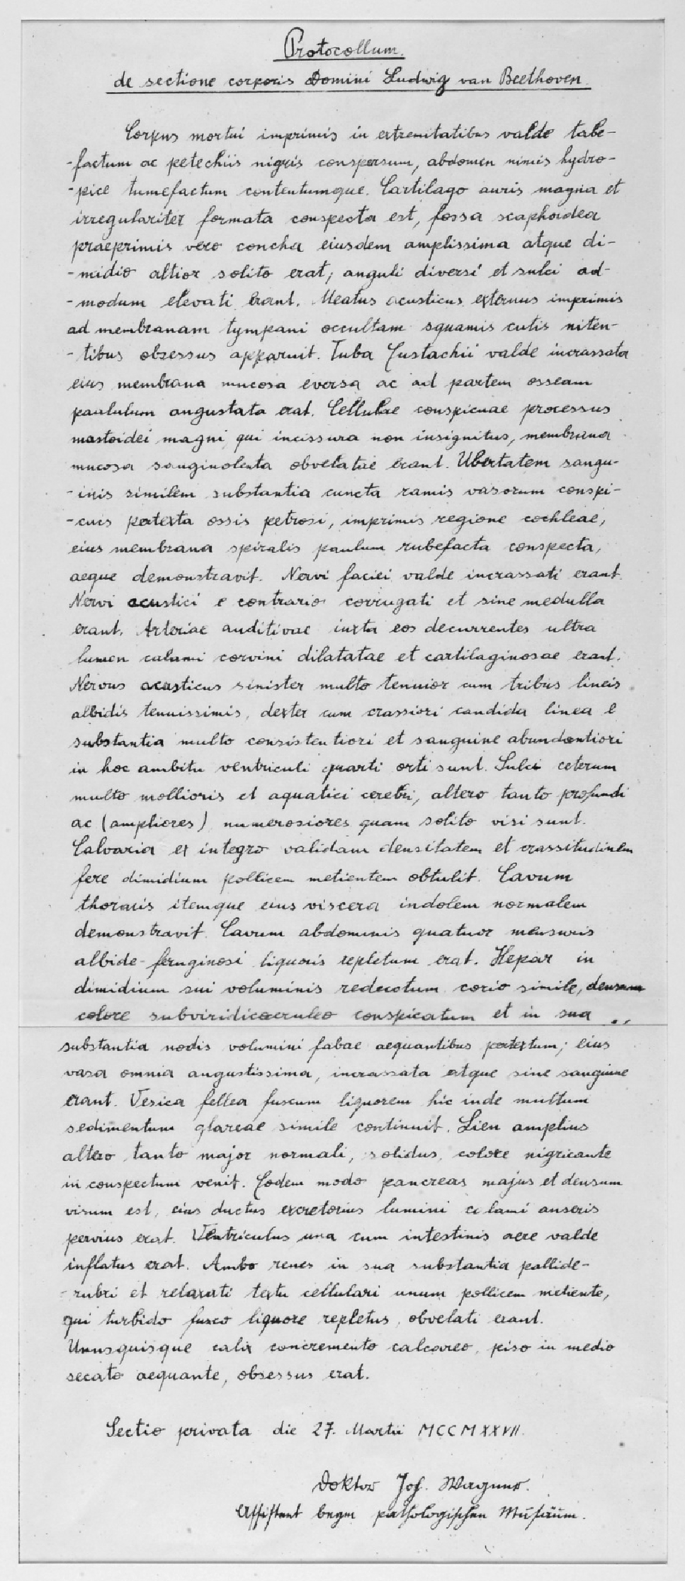 Protocollum.
de sectione corporis Domini Ludwig van Beethoven.
Corpus mortui imprimis in extremitatibus valde tabe-
-factum ac petechiis nigris conspersum, abdomen nimis hydro-
-pice tumefactum contentumque. Cartilago auris magna et
irregulariter formata conspecta est, fossa scaphoidea
praeprimis vero concha eiusdem amplissima atque di-
-midio altior solito erat; anguli diversi et sulci ad-
-modum elevati erant. Meatus acusticus externus imprimis
ad membranam tympani occultam squamis cutis niten-
-tibus obsessus apparuit. Tuba Eustachii valde incrassata
eius membrana mucosa eversa ac ad partem osseam
paululum angustata erat. Cellulae conspicuae processus
mastoidei magni, qui incissura non insignitus, membrana
mucosa sanguinolenta obvelatae erant. Ubertatem sangu-
-inis similem substantia cuncta ramis vasorum conspi-
-cuis pertexta ossis petrosi, imprimis regione cochleae,
eius membrana spiralis paulum rubefacta conspecta,
aeque demonstravit. Nervi faciei valde incrassati erant.
Nervi acustici e contrario corrugati et sine medulla
erant. Arteriae auditivae iuxta eos decurrentes ultra
lumen calami corvini dilatatae et cartilaginosae erant.
Nervus acusticus sinister multo tenuior cum tribus lineis
albidis tenuissimis, dexter cum crassiori candida linea e
substantia multo consistentiori et sanguine abundantiori
in hoc ambitu ventriculi quarti orti sunt. Sulci ceterum
multo mollioris et aquatici cerebri, altero tanto profundi
ac (ampliores) numerosiores quam solito visi sunt.
Calvaria ex integro validam densitatem et crassitudinem
fere dimidium pollicem metientem obtulit. Cavum
thoracis itemque eius viscera indolem normalem
demonstravit. Cavum abdominis quatuor mensuris
albide-feruginosi liquoris repletum erat. Hepar in
dimidium sui voluminis redactum corio simile, densum
colore subviridicaeruleo conspicatum et in sua
substantia nodis volumini fabae aequantibus pertextum; eius
vasa omnia angustissima, incrassata atque sine sanguine
erant. Vesica fellea fuscum liquorem hic inde multum
sedimentum glareae simile continuit. Lien amplius
altero tanto major normali, solidus, colore nigricante
in conspectum venit. Eodem modo pancreas majus et densum
visum est, eius ductus excretorius lumini calami anseris
pervius erat. Ventriculus una cum intestinis aere valde
inflatus erat. Ambo renes in sua substantia pallide-
-rubri et relaxati tatu cellulari unum pollicem metiente,
qui turbido fusco liquore repletus, obvelati erant.
Unusquisque calix concremento calcareo, piso in medio
secato aequante, obsessus erat.
Sectio privata die 27. Martii MCCMXXVII.
Doktor Jos. Wagner.
Assistent beym pathologischen Musäum.